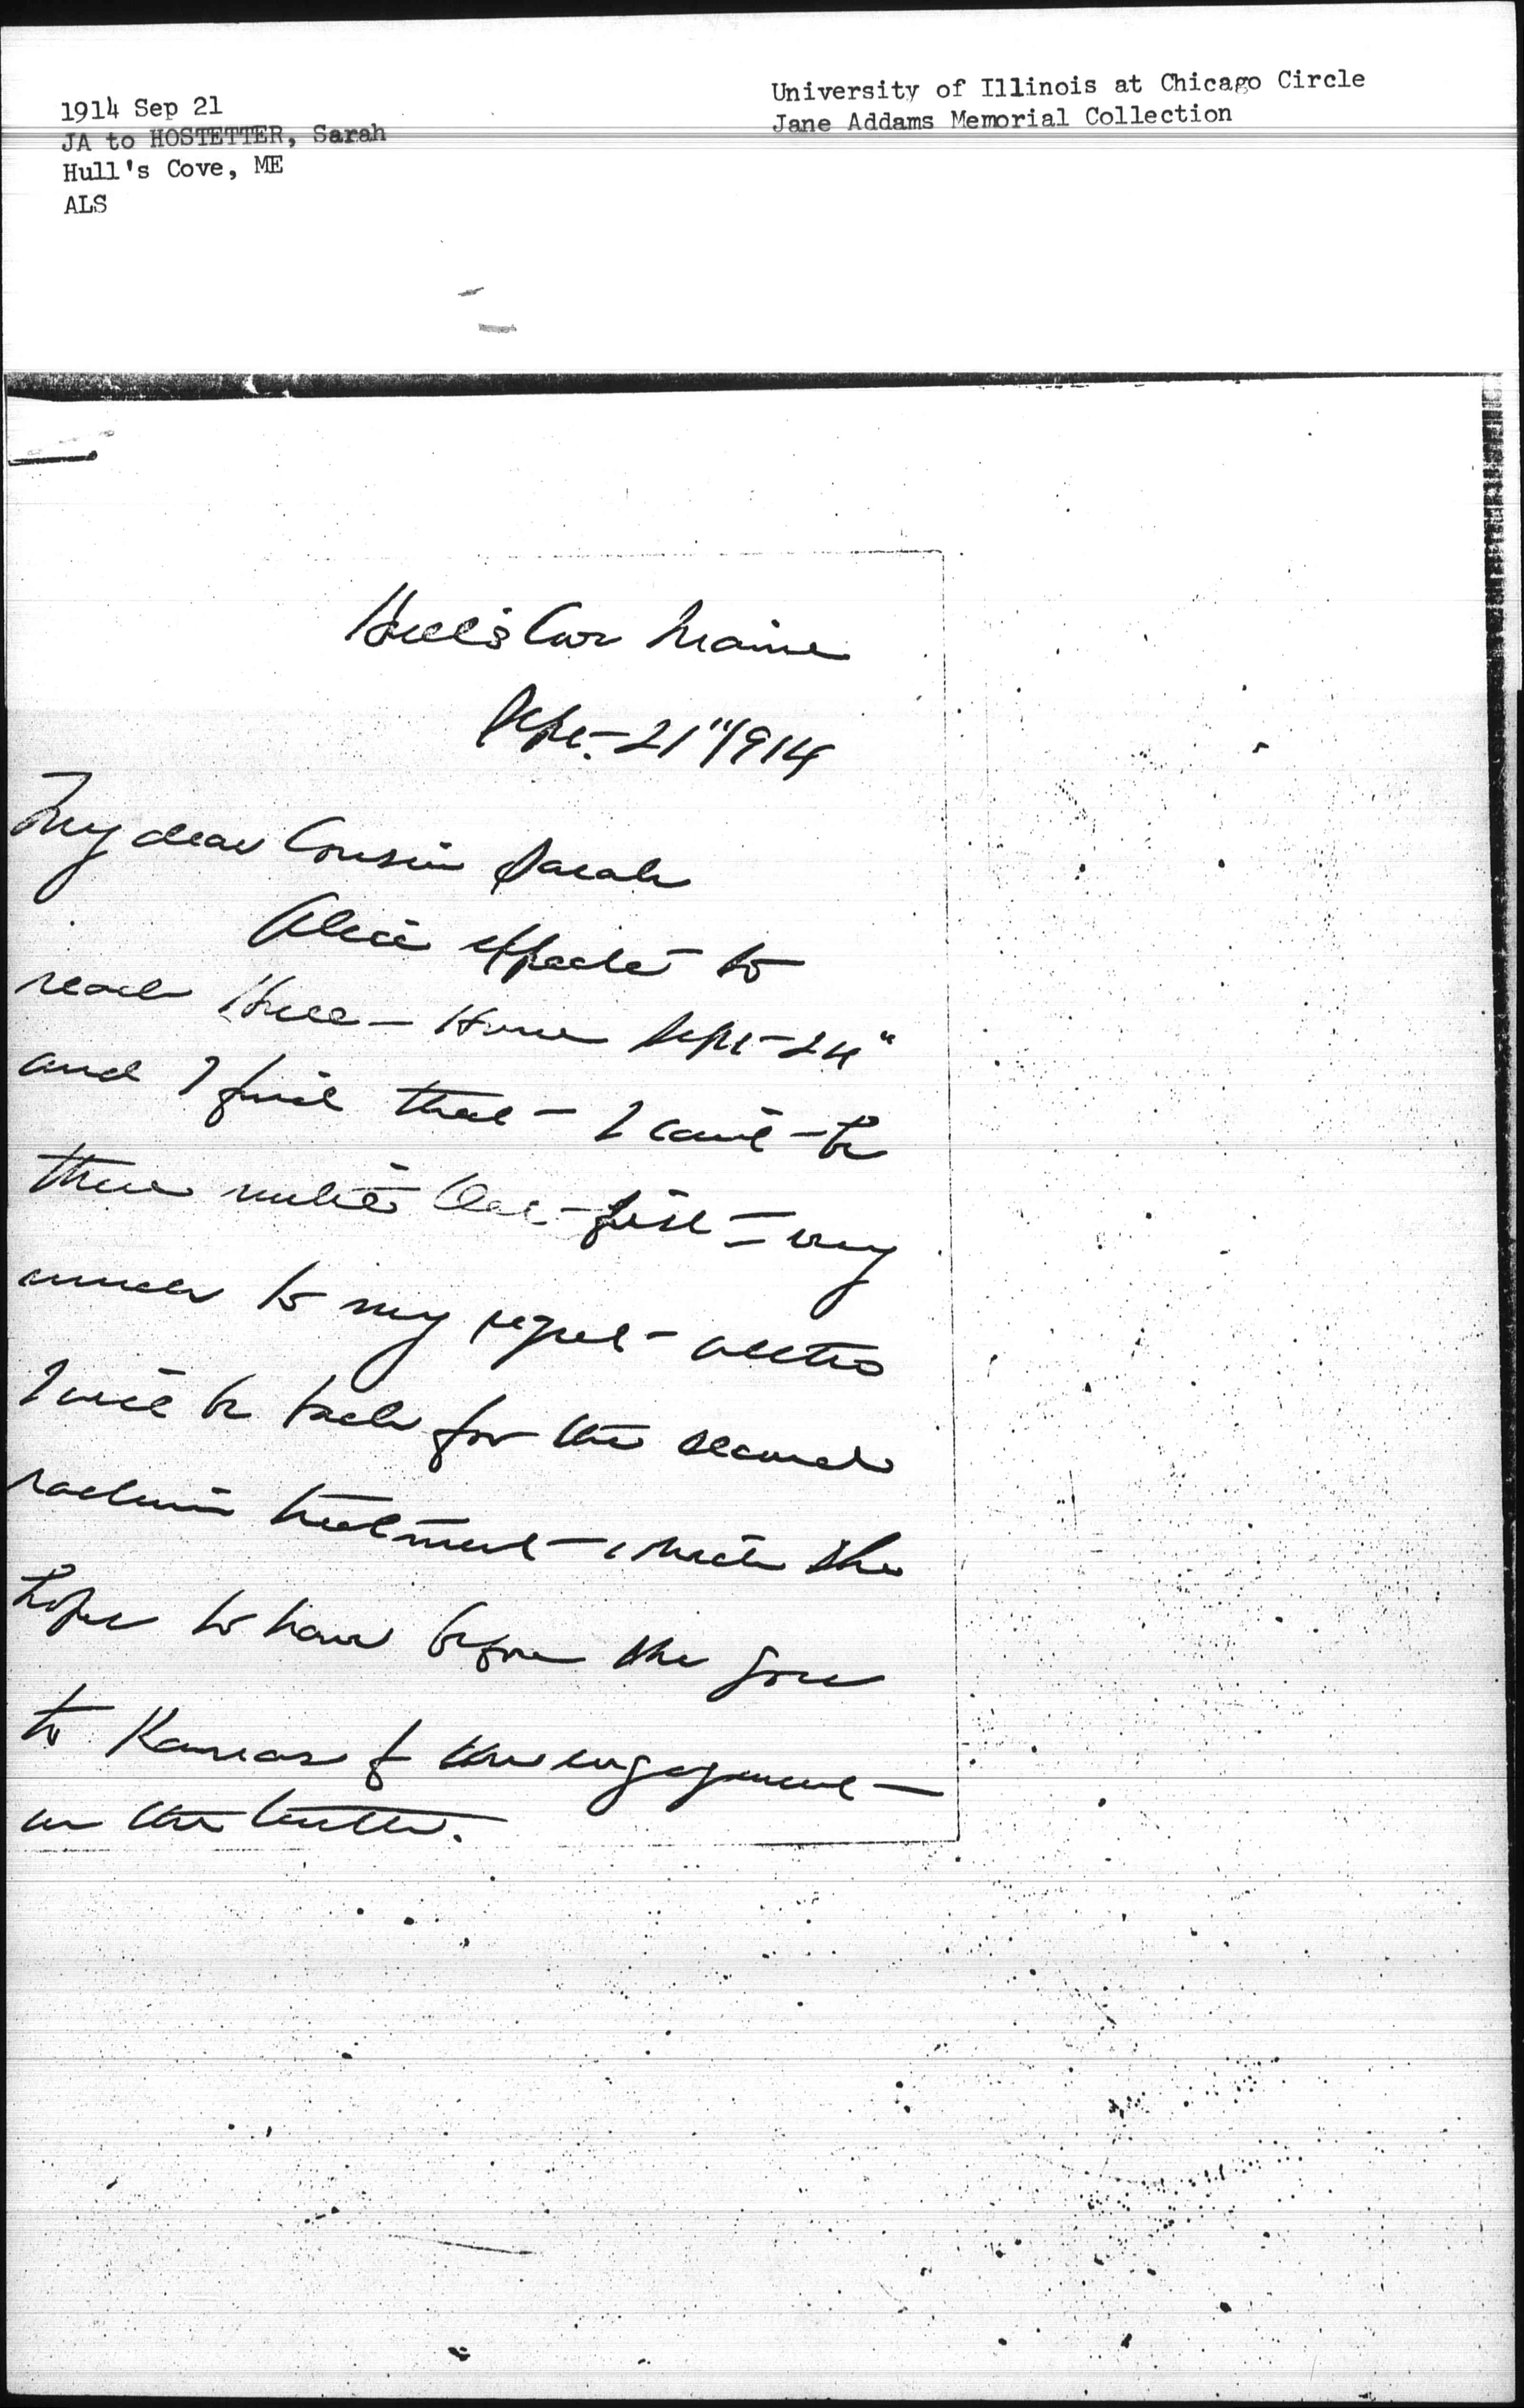 1914 Sep 21
JA to HOSTETTER, Sarah
Hull's Cove, ME
ALS
University of Illinois at Chicago Circle
Jane Addams Memorial Collection
Hull's Cove Maine
Sept. 21" 1914
My dear Cousin Sarah
Alice expects to
reach Hull-House Sept 24"
and I find that I can't be
there until Oct first — very
much to my regret altho
I will be back for the second
radium treatment which she
hopes to have before she goes
to Kansas & the engagement
on the